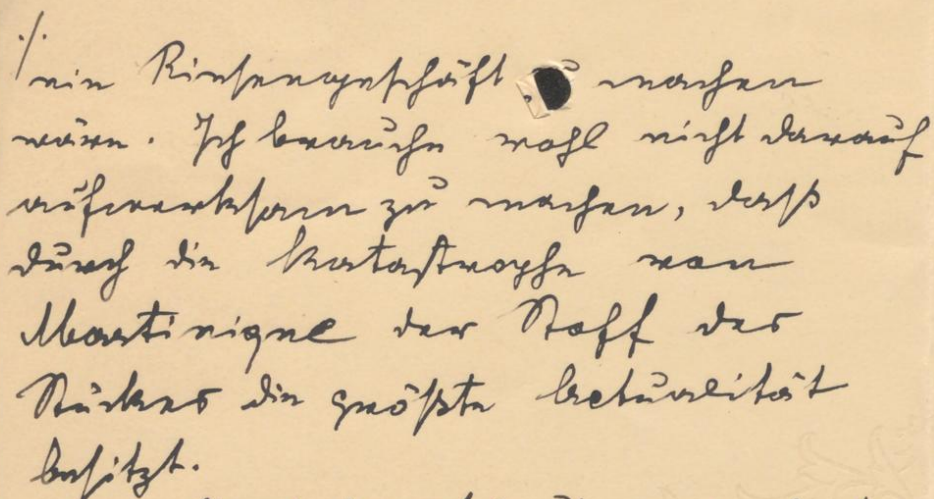 ./.
ein Riesengeschäft zu machen
wäre. Ich brauche wohl nicht darauf
aufmerksam zu machen, daß
durch die Katastrophe von
Martinique der Stoff des
Stückes die größte Actualität
besitzt.